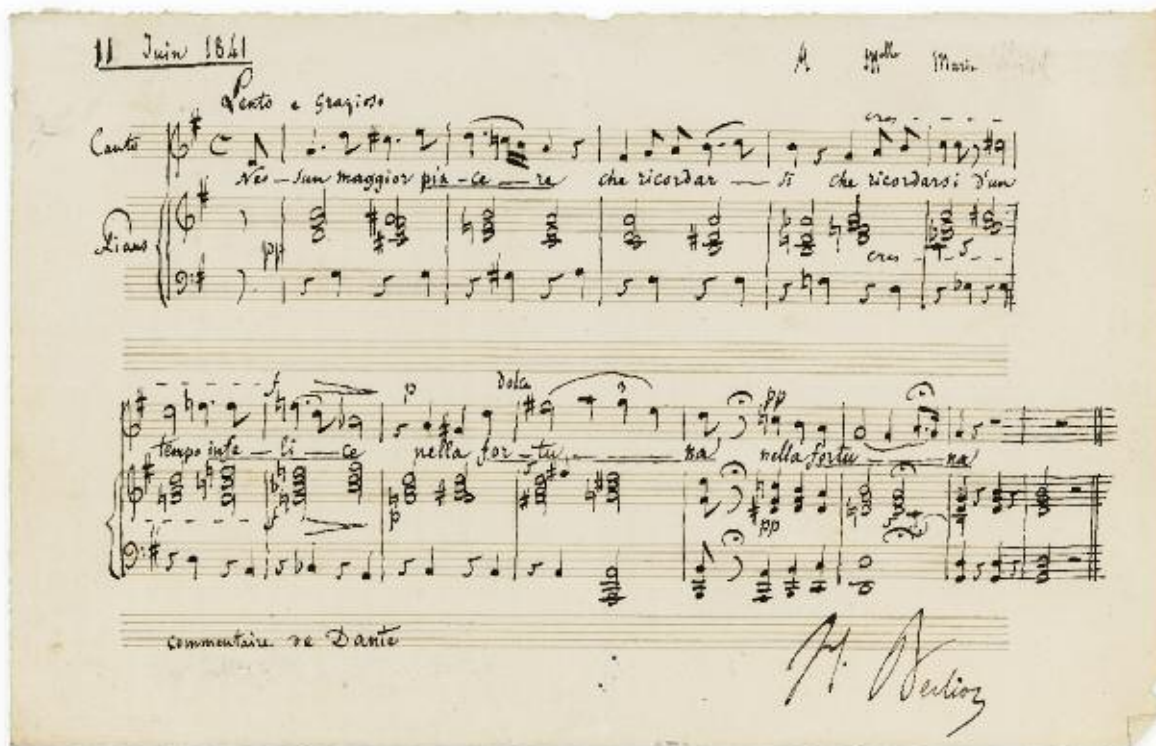 11 Juin 1841
A Melle Marie
Lento e Grazioso
cres - - - -
Canto
Nes-sun maggior pia-ce-re che ricordar-si che ricordarsi d'un
Piano
pp
cres - - - -
f p dolce 3 pp
tempo infe-li-ce nella for-tu-na nella fortu-na
f p pp
commentaire de Dante
H. Berlioz